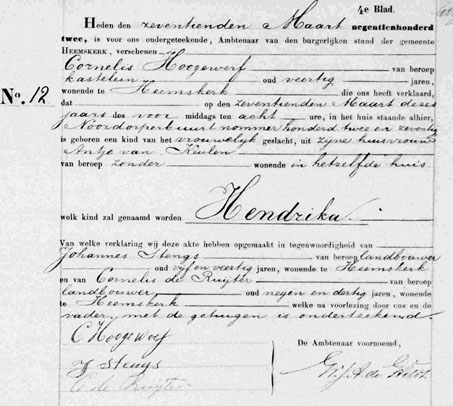 4e Blad.
Heden den zeventienden Maart negentienhonderd
twee, is voor ons ondergeteekende, Ambtenaar van den burgerlijken stand der gemeente
HEEMSKERK, verschenen
Cornelis Hoogewerf van beroep
kastelein oud veertig jaren,
wonende te Heemskerk die ons heeft verklaard,
No. 12
dat op den zeventienden Maart dezes
jaars des voor middags ten acht ure, in het huis staande alhier,
Noorddorperbuurt nommer honderd twee en zeventig
is geboren een kind van het vrouwelijk geslacht, uit zijne huisvrouw
Antje van Keulen
van beroep zonder wonende in hetzelfde huis
welk kind zal genaamd worden Hendrika.
Van welke verklaring wij deze akte hebben opgemaakt in tegenwoordigheid van
Johannes Stengs van beroep landbouwer
oud vijf en veertig jaren, wonende te Heemskerk
en van Cornelis de Ruyter van beroep
landbouwer oud negen en dertig jaren, wonende
te Heemskerk welke na voorlezing door ons en de
vader, met de getuigen is onderteekend.
C Hoogewerf
J Stengs
C de Ruyter
De Ambtenaar voornoemd,